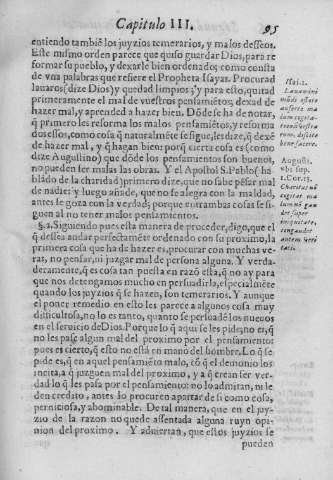 Capitulo III.
95
entiendo tambiẽ los juyzios temerarios, y malos desseos.
Este mismo orden parece que quiso guardar Dios, para re
formar su pueblo, y dexarle bien ordenado; como consta
de vna palabras que refiere el Propheta Isayas. Procurad
lauaros (dize Dios) y quedad limpios; y para esto, quitad
primeramente el mal de vuestros pensamiẽtos; dexad de
hazer mal, y aprended a hazer bien. Dõde se ha de notar,
q̃ primero les reforma los malos pensamiẽtos, y reforma
dos essos, como cosa q̃ naturalmẽte se sigue, les dize, q̃ dexẽ
de hazer mal, y q̃ hagan bien: porq̃ cierta cosa es (como
dize Augustino) que dõde los pensamientos son buenos,
no pueden ser malas las obras. Y el Apostol S. Pablo (ha
blando de la charidad) primero dize, que no sabe pẽsar mal
de nadie: y luego añade, que no se alegra con la maldad,
antes le goza con la verdad; porque entrambas cosas se si
guen al no tener malos pensamientos.
§. 2. Siguiendo pues esta manera de proceder, digo, que el
q̃ dessea andar perfectamẽte ordenado con su proximo, la
primera cosa que ha de hazer es, procurar con muchas ve
ras, no pensar, ni juzgar mal de persona alguna. Y verda-
deramente, q̃ es cosa tan puesta en razõ esta, q̃ no ay para
que nos detengamos mucho en persuadirla, especialmẽte
quando los juyzios q̃ se hazen, son temerarios. Y aunque
el poner remedio en esto les parece a algunos cosa muy
difficultosa, no lo es tanto, quanto se persuadẽ los nueuos
en el seruicio de Dios. Porque lo q̃ aqui se les pide, no es, q̃
no les passe algun mal del proximo por el pensamiento:
pues es cierto, q̃ esto no està en mano del hombre. Lo q̃ se
pide es, q̃ en aquel pensamiẽto malo, cõ q̃ el demonio los
incita, a q̃ juzguen mal del proximo, y a q̃ crean ser ver-
dad lo q̃ les passa por el pensamiento: no lo admitan, ni le
den credito, antes lo procuren apartar de si como cosa,
perniciosa, y abominable. De tal manera, que en el juy-
zio de la razon no quede assentada alguna ruyn opi-
nion del proximo. Y aduiertan, que estos juyzios se
pueden
Isai. 1.
Lauamini
mũdi estote
auferte ma
lum cogita-
tionũ vestra
rum, &c.
August.
vbi sup.
1. Cor. 13.
Charitas nõ
cogitat ma
lum nõ gau
det super
iniquitate,
congaudet
autem veri
tati.